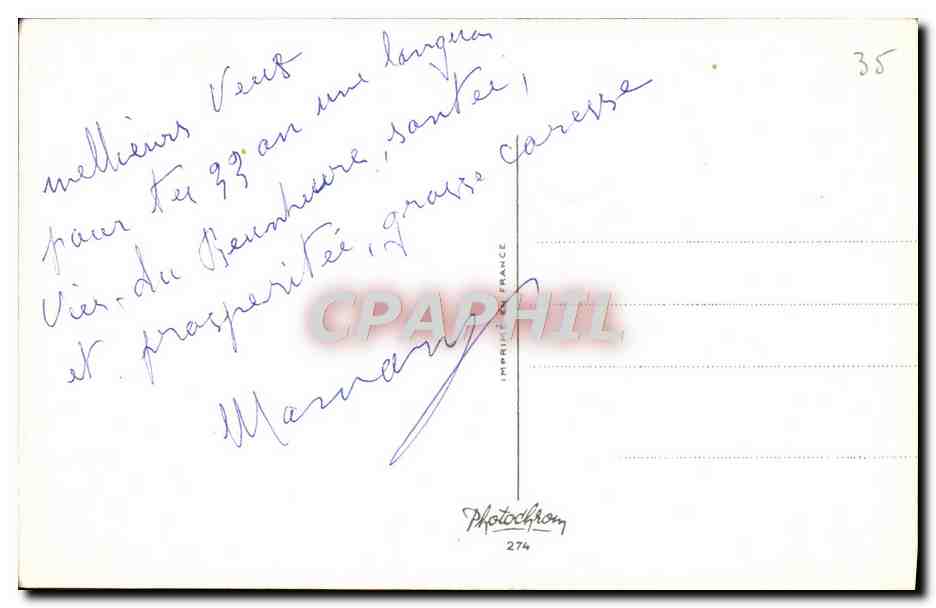 mellieurs Veux
pour tes 33 an une longue
Vies. du Beunheure, santée,
et prosperitée, grosse caresse
Maman
35
IMPRIMÉ EN FRANCE
CPAPHIL
Photochrom
274